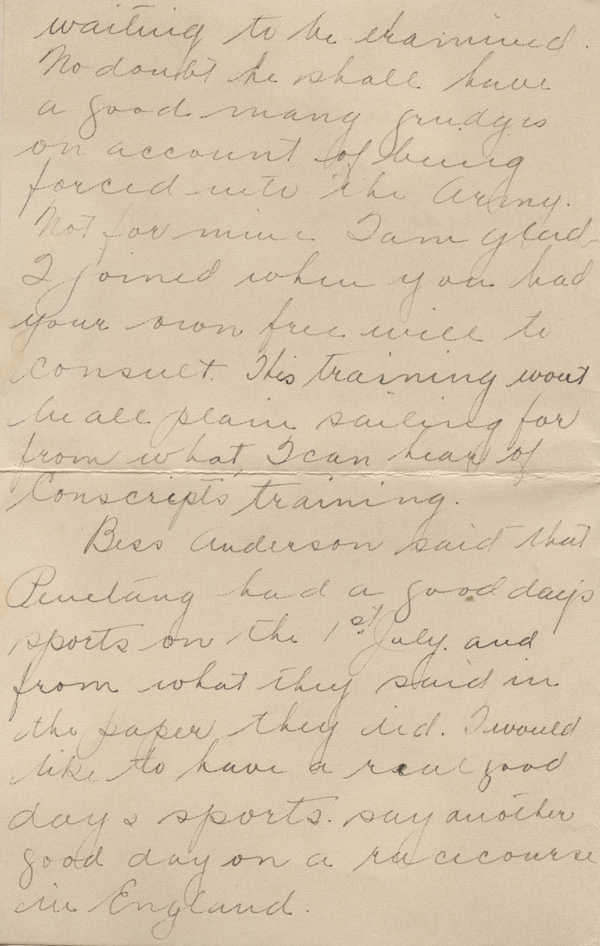 waiting to be examined.
No doubt he shall have
a good many grudges
on account of being
forced into the Army.
Not for mine I am glad
I joined when you had
your own free will to
consult. His training wont
be all plain sailing for
from what I can hear of
Conscripts training.
Bess Anderson said that
Penetang had a good days
sports on the 1st July. and
from what they said in
the paper they did. I would
like to have a real good
days sports. say another
good day on a racecourse
in England.